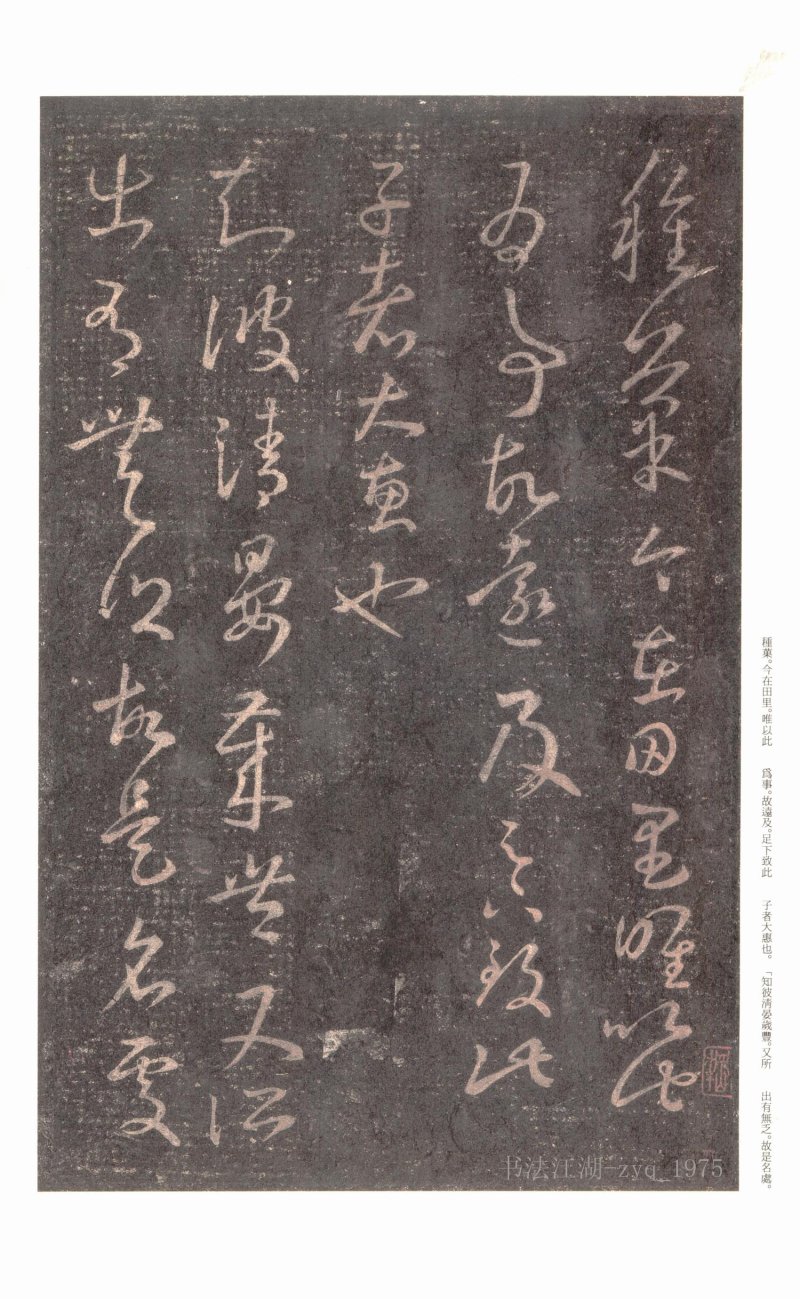 種菓今在田里唯以此
為事故遠及足下致此
子者大惠也
知彼清晏歲豐又所
出有無乏故是名處
種菓。今在田里。唯以此
爲事。故遠及。足下致此
子者大惠也。
「知彼清晏歲豐。又所
出有無乏。故是名處。
书法江湖-zyq_1975